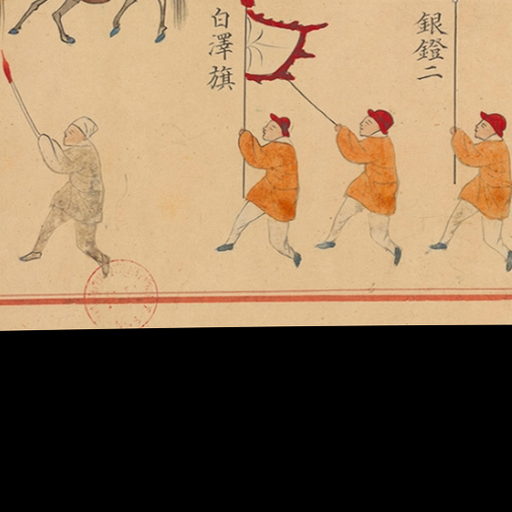 銀鐙二
白澤旗